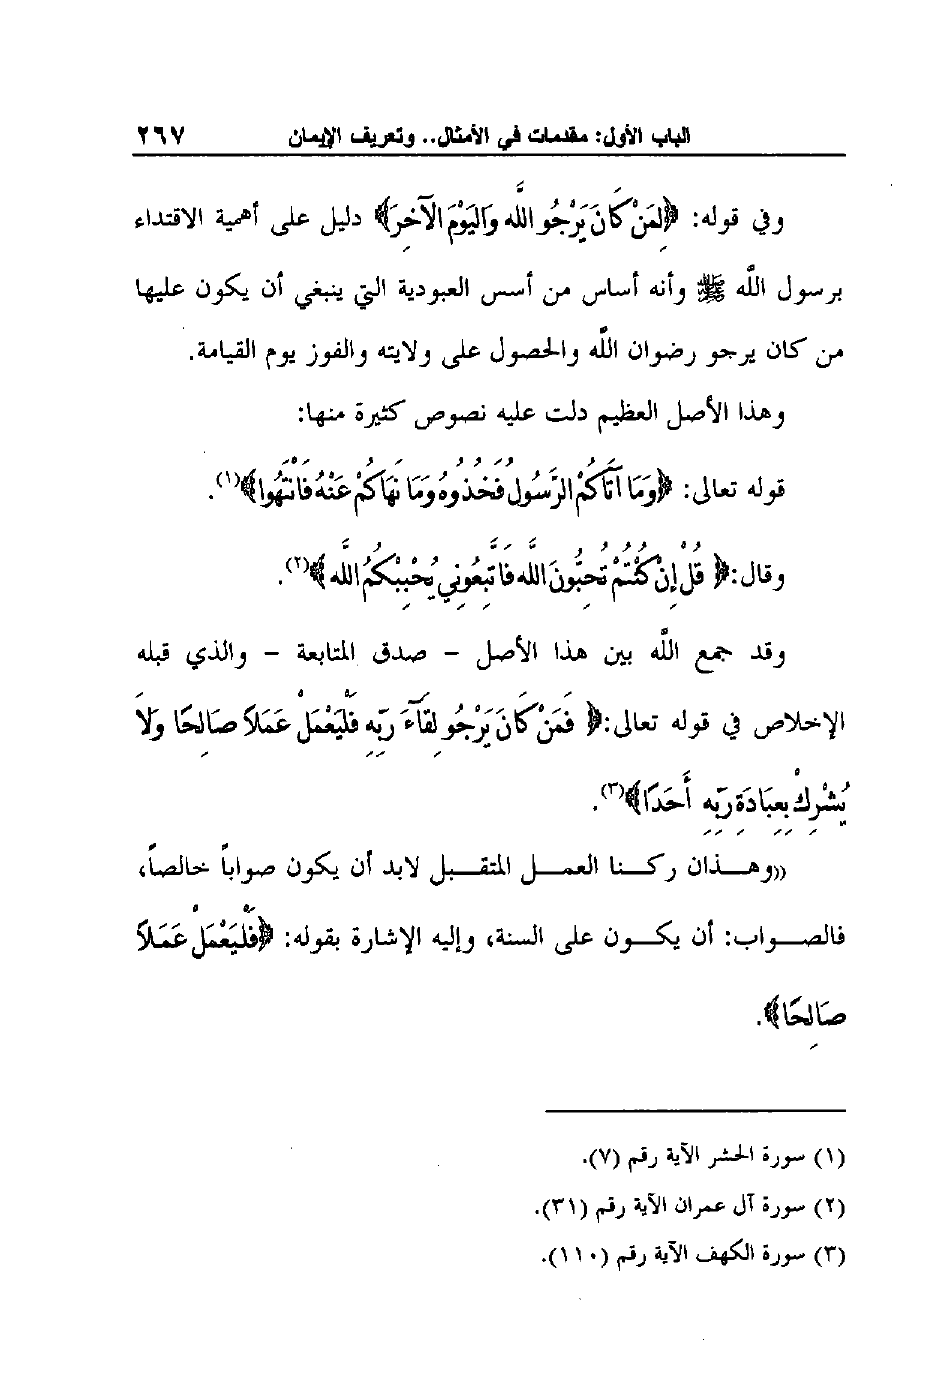 الباب الأول: مقدمات في الأمثال.. وتعريف الإيمان ٢٦٧
وفي قوله: ﴿لِمَنْ كَانَ يَرْجُو اللَّه وَاليَوْمَ الآخِرَ﴾ دليل على أهمية الاقتداء
برسول اللَّه ﷺ وأنه أساس من أسس العبودية التي ينبغي أن يكون عليها
من كان يرجو رضوان اللَّه والحصول على ولايته والفوز يوم القيامة.
وهذا الأصل العظيم دلت عليه نصوص كثيرة منها:
قوله تعالى: ﴿وَمَا آتَاكُمْ الرَّسُولُ فَخُذُوهُ وَمَا نَهَاكُمْ عَنْهُ فَانْتَهُوا﴾(١).
وقال:﴿ قُلْ إِنْ كُنْتُمْ تُحِبُّونَ اللَّه فَاتَّبِعُونِي يُحْبِبْكُمُ اللَّه ﴾(٢).
وقد جمع اللَّه بين هذا الأصل - صدق المتابعة - والذي قبله
الإخلاص في قوله تعالى:﴿ فَمَنْ كَانَ يَرْجُو لِقَآءَ رَبِّهِ فَلْيَعْمَلْ عَمَلاً صَالِحًا وَلاَ
يُشْرِكْ بِعِبَادَةِ رَبِّهِ أَحَدًا﴾(٣).
((وهـــذان ركـــنا العمـــل المتقـــبل لابد أن يكون صواباً خالصاً،
فالصـــواب: أن يكـــون على السنة، وإليه الإشارة بقوله: ﴿فَلْيَعْمَلْ عَمَلاً
صَالِحًا﴾.
(١) سورة الحشر الآية رقم (٧).
(٢) سورة آل عمران الآية رقم (٣١).
(٣) سورة الكهف الآية رقم (١١٠).